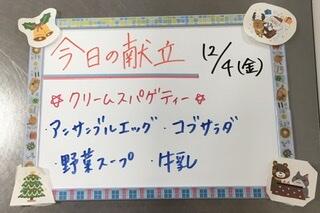 今日の献立 12/4(金)
☆クリームスパゲティー☆
・アンサンブルエッグ ・コブサラダ
・野菜スープ ・牛乳